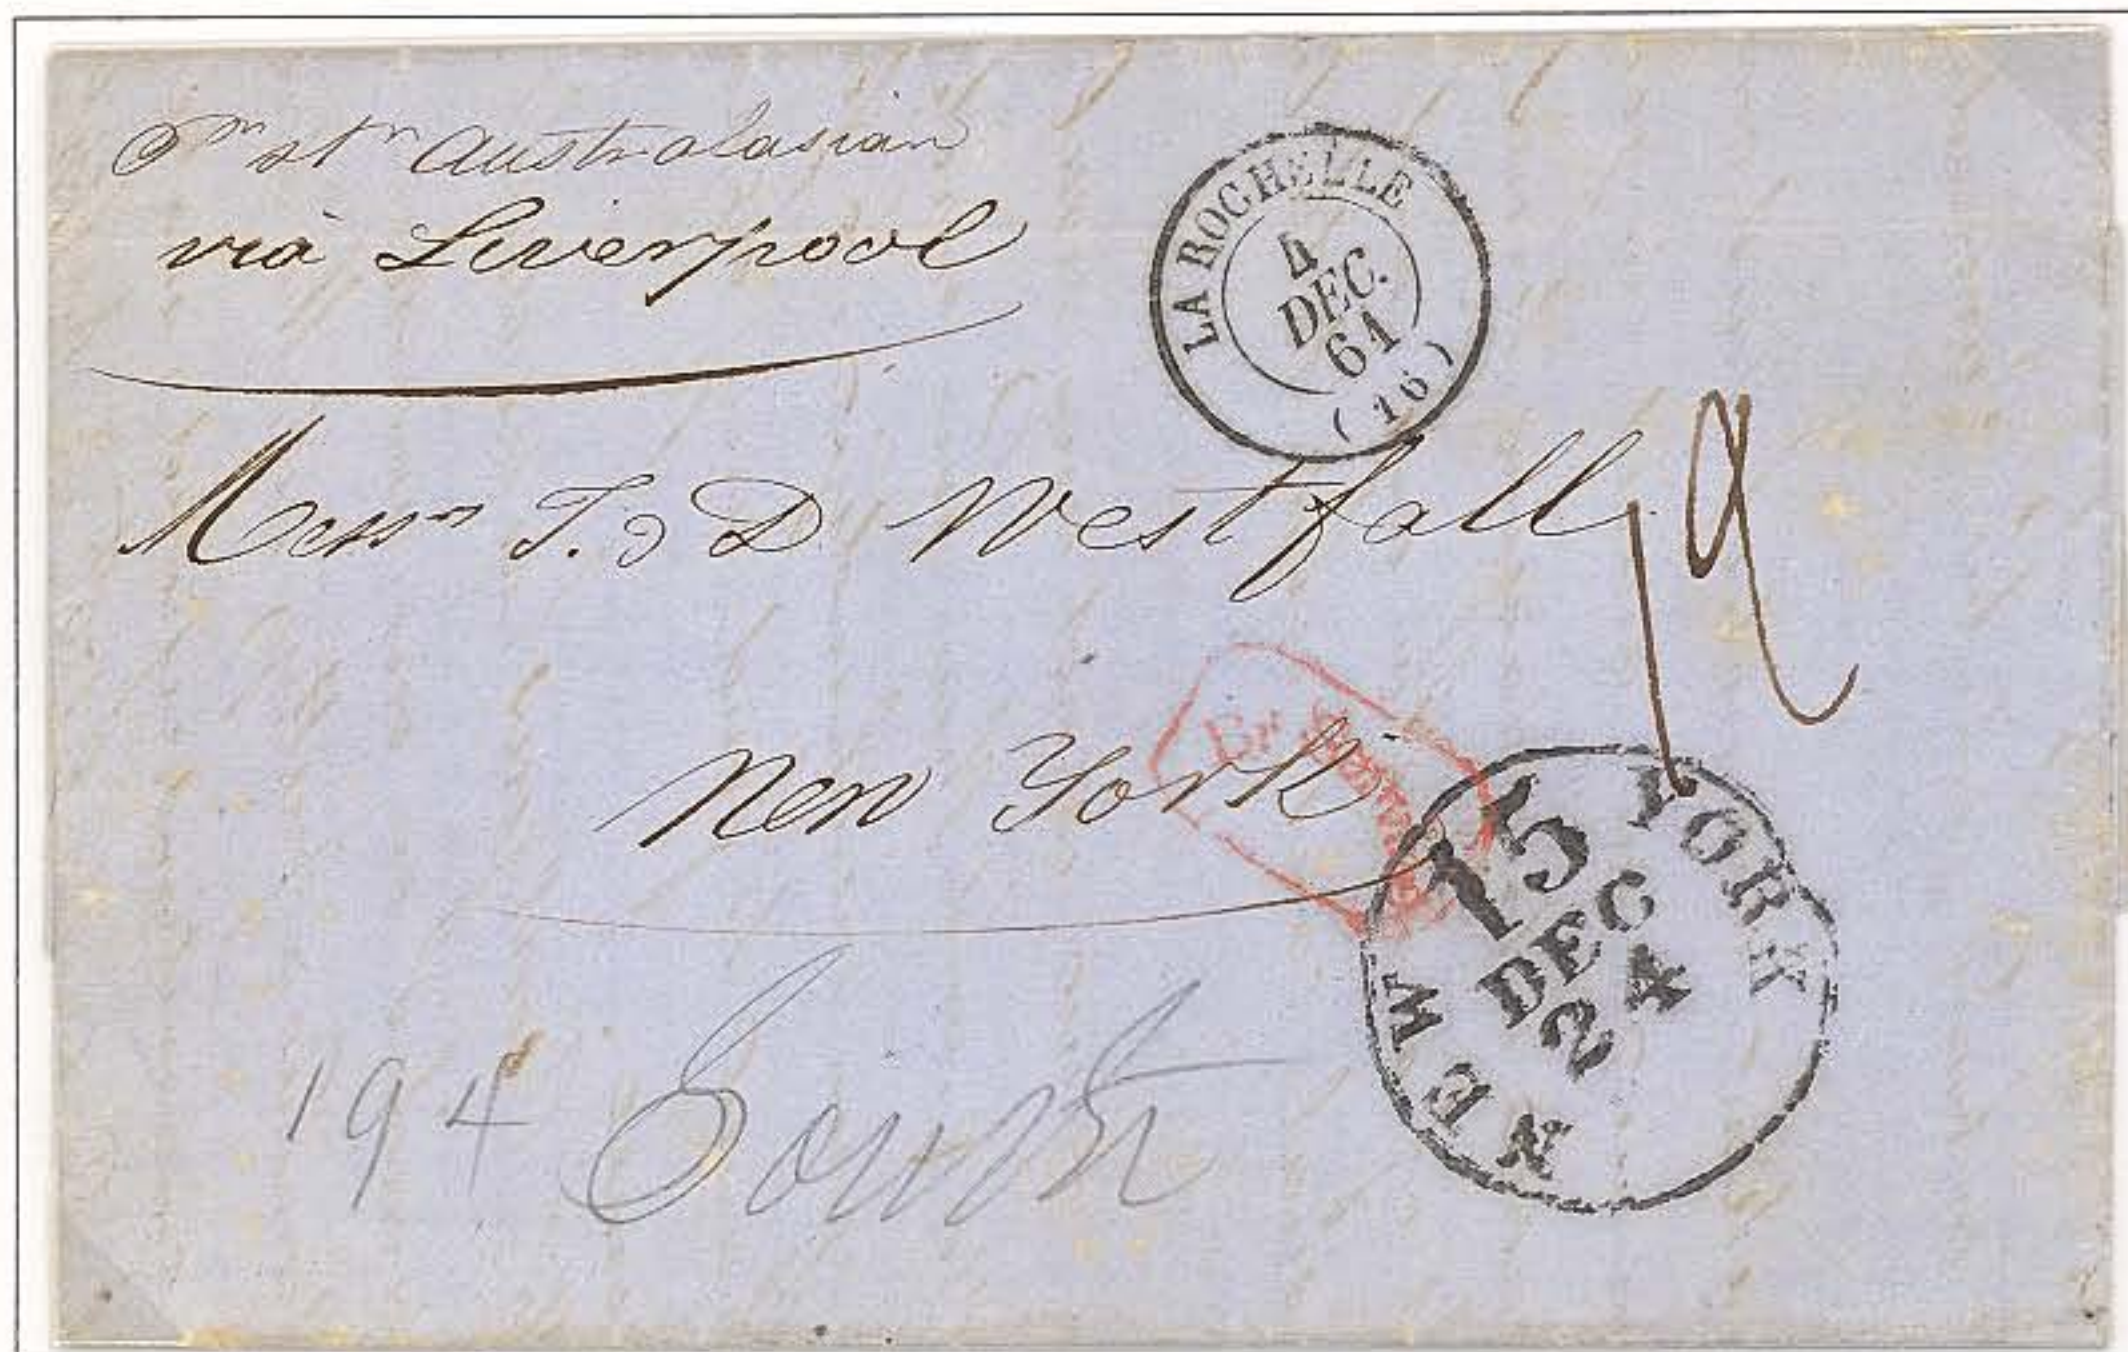 Pr Str Australasian
via Liverpool
LA ROCHELLE
4
DEC.
61
(16)
Messrs T. & D Westfall
19
New York
Br
NEW YORK
15
DEC
24
194 South